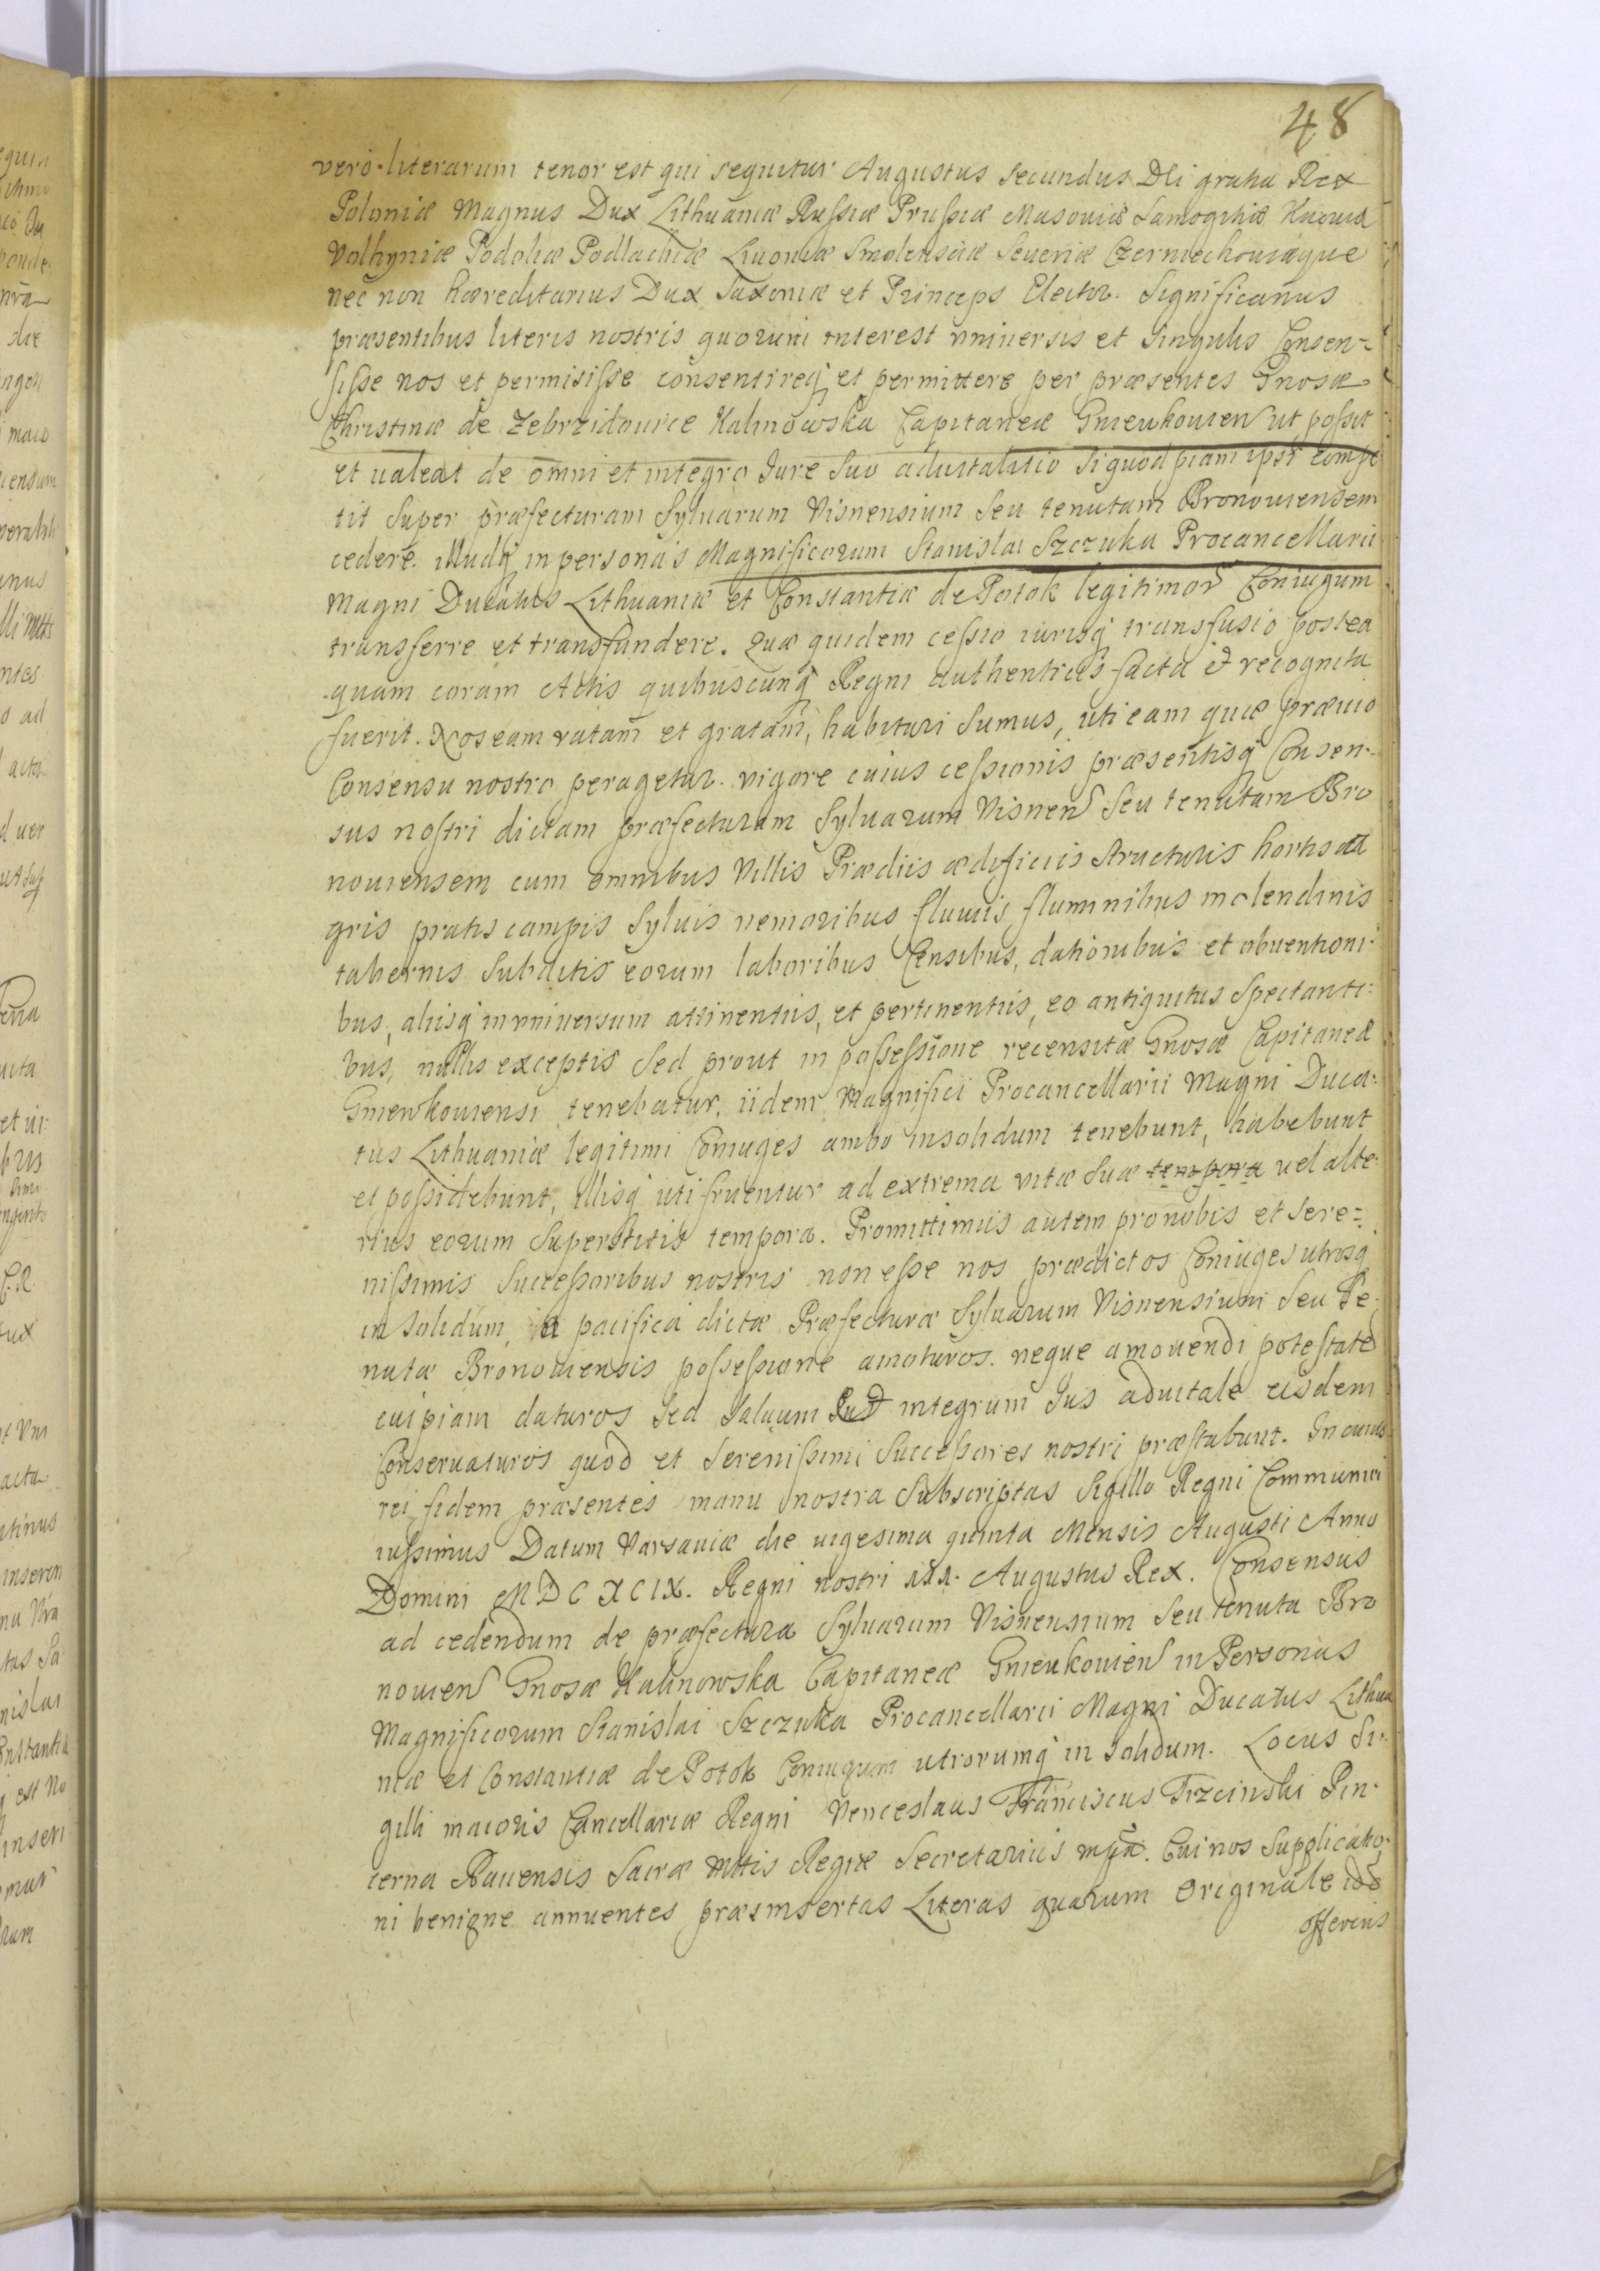 48
vero literarum tenor est qui sequitur Augustus Secundus Dei gratia Rex
Poloniæ Magnus Dux Lithuaniæ Russiæ Prussiæ Masouiæ Samogitiæ Kijouiæ
Volhyniæ Podoliæ Podlachiæ Liuoniæ Smolensciæ Seueriæ Czerniechouiæque
nec non hæreditarius Dux Saxoniæ et Princeps Elector. Significamus
præsentibus literis nostris quorum interest vniuersis et singulis Consen-
sisse nos et permisisse consentireq et permittere per præsentes Gnosæ
Christinæ de Zebrzidouice Kalinowska Capitaneæ Gnieukouien ut possit
et ualeat de omni et integro Jure suo aduitalitio siquod piam ipsi compe
tit super præfecturam Syluarum Visnensium seu tenutam Bronouiensem
cedere. illudq in personas Magnificorum Stanislai Szczuka Procancellarii
Magni Ducatus Lithuaniæ et Constantiæ de Potok legitimor Coniugum
transferre et transfundere. Quæ quidem cessio iurisq transfusio postea
quam coram Actis quibuscunq Regni authenticis facta et recognita
fuerit. Nos eam ratam et gratam, habituri sumus, uti eam quæ præuio
Consensu nostro peragetur. vigore cuius cessionis præsentisq Consen-
sus nostri dictam præfecturam Syluarum Visnen seu tenutam Bro
nouiensem cum omnibus Villis Prædiis ædificiis structuris hortis a
gris pratis campis syluis nemoribus fluuiis fluminibus molendinis
tabernis subditis eorum laboribus Censibus, dationibus et obuentioni-
bus, aliisq in vniuersum attinentiis, et pertinentiis, eo antiquitus spectanti-
bus, nullis exceptis sed prout in possessione recensitæ Gnosæ Capitaneæ
Gniewkouiensi tenebatur, iidem Magnifici Procancellarii Magni Duca-
tus Lithuaniæ legitimi Coniuges ambo insolidum tenebunt, habebunt
et possidebunt, illisq uti fruentur ad extrema vitæ suæ tempora uel alte-
rius eorum superstitis tempora. Promittimus autem pro nobis et sere=
nissimis successoribus nostris non esse nos prædictos Coniuges utrosq
in solidum, a pacifica dictæ Præfecturæ Syluarum Visnensium seu Te-
nutæ Bronouiensis possessione amoturos. neque amouendi potestate
cuipiam daturos sed saluum integrum Jus aduitale eisdem
Conseruaturos quod et serenissimi successores nostri præstabunt. In cuius
rei fidem præsentes manu nostra subscriptas Sigillo Regni Communiri
iussimus Datum Varsauiæ die uigesima quinta Mensis Augusti Anno
Domini MDCXCIX. Regni nostri Augustus Rex. Consensus
ad cedendum de præfectura Syluarum Visnensium seu tenuta Bro
nouien Gnosæ Kalinowska Capitaneæ Gnieukouien in Personas
Magnificorum Stanislai Szczuka Procancellarii Magni Ducatus Lithua
niæ et Constantiæ de Potok Coniugum utrorumq in solidum. Locus Si-
gilli maioris Cancellariæ Regni Venceslaus Franciscus Trzcinski Pin-
cerna Rauensis Sacræ Mttis Regiæ Secretarius mpa. Cui nos supplicatio-
ni benigne annuentes præinsertas Literas quarum Originale idem
offerens